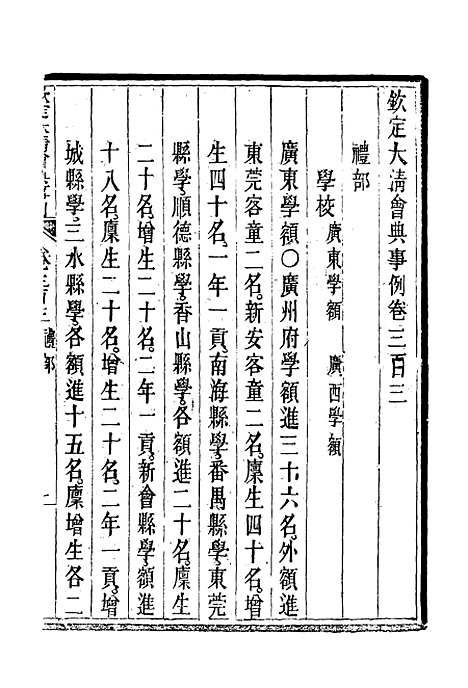 欽定大淸會典事例卷三百三
禮部
學校　廣東學額　廣西學額
廣東學額〇廣州府學額進三十六名。外額進
東莞客童二名。新安客童二名。廩生四十名。增
生四十名。一年一貢。南海縣學。番禺縣學。東莞
縣學。順德縣學。香山縣學。各額進二十名。廩生
二十名。增生二十名。二年一貢。新會縣學。額進
十八名。廩生二十名。增生二十名。二年一貢。增
城縣學。三水縣學。各額進十五名。廩增生各二